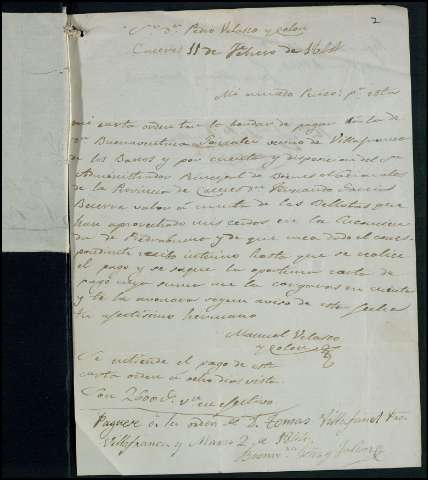 2
Sr. Dn. Pedro Velasco y Colon
Caceres 11 de Febrero de 1844
Mi amado Primo: pr. esta
mi carta orden ten la bondad de pagar a la de
Dn. Buenaventura vecino de Villafranca
de los Barros y por cuenta y disposicion del Sr.
Administrador Principal de Bienes Nacionales
de la Provincia de Caceres Dn. Fernando Garcia
Becerra valor a cuenta de las Bellotas que
han aprovechado mis cerdos en la Encomien
da de Piedrabuena y de que me ha dado el corres
pondiente recibo interino hasta que se realice
el pago y se saque la oportuna carta de
pago cuya suma me la cargaras en cuenta
y te la abonara segun aviso de esta fecha
tu afectisimo hermano
Manuel Velasco
y Colon
Se entiende el pago de esta
carta orden a ocho dias vista.
Son 2600 rs. vn. en efectivo
Paguese a la orden de D. Tomas Villafranca
Villafranca y Marzo 2 de 1844